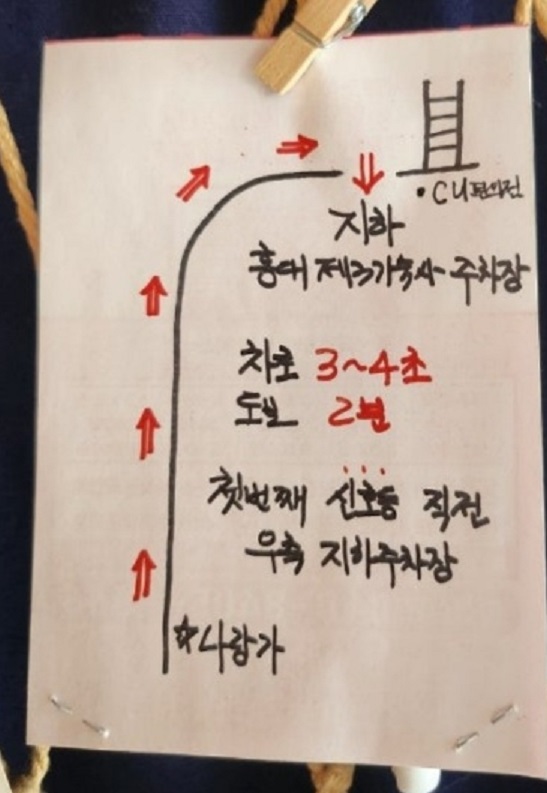 • CU편의점
지하
홍대 제3기숙사 주차장
차로 3~4초
도보 2분
첫번째 신호등 직전
우측 지하주차장
☆나랑가